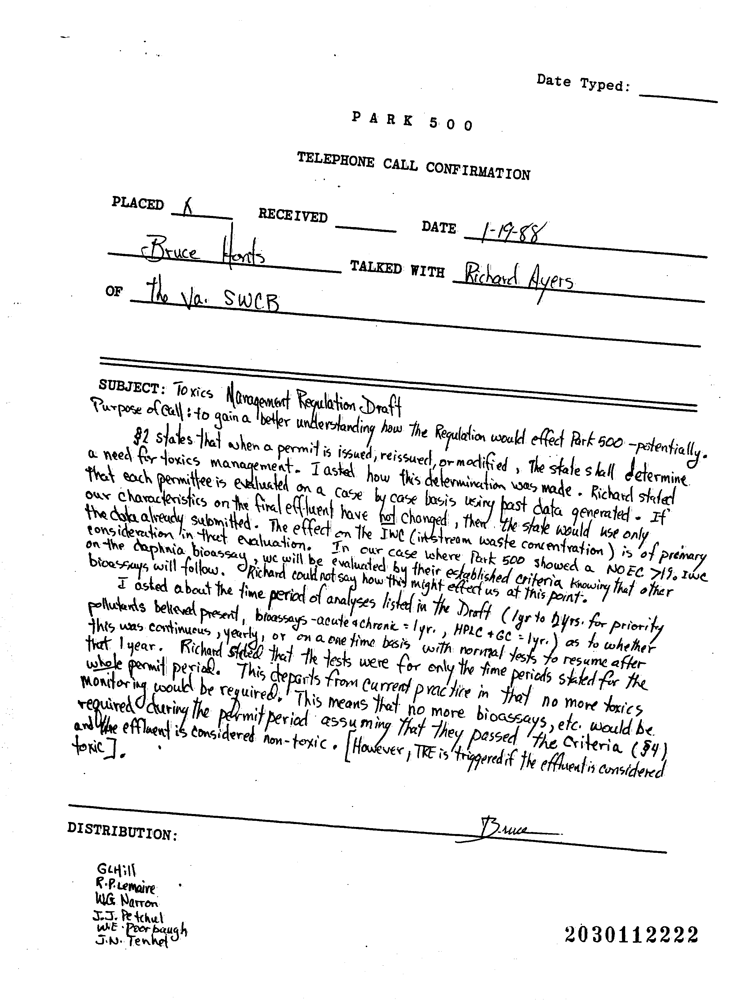 Date Typed:
PARK 500
TELEPHONE CALL CONFIRMATION
PLACED X RECEIVED DATE 1-19-88
Bruce TALKED WITH Richard Ayers
OF the Va. SWCB
SUBJECT: Toxics Management Regulation Draft
Purpose of Call: to gain a better understanding how the Regulation would effect Park 500 - potentially.
§2 states that when a permit is issued, reissued, or modified, the state shall determine
a need for toxics management. I asked how this determination was made. Richard stated
that each permittee is evaluated on a case by case basis using past data generated. If
our characteristics on the final effluent have not changed, then the state would use only
the data already submitted. The effect on the IWC (instream waste concentration) is of premary
consideration in that evaluation. In our case where Park 500 showed a NOEC >1% IWC
on the daphnia bioassay, we will be evaluated by their established criteria knowing that other
bioassays will follow. Richard could not say how this might effect us at this point.
I asked about the time period of analyses listed in the Draft (1yr to yrs. for priority
pollutants believed present, bioassays - acute + chronic = 1yr., HPLC + GC = 1yr.) as to whether
this was continuous, yearly, or on a one time basis with normal tests to resume after
that 1 year. Richard stated that the tests were for only the time periods stated for the
whole permit period. This departs from current practice in that no more toxics
monitoring would be required. This means that no more bioassays, etc. would be
required during the permit period assuming that they passed the criteria (§4)
and the effluent is considered non-toxic. [However, TRE is triggered if the effluent is considered
toxic].
Bruce
DISTRIBUTION:
GLHill
R.P. Lemaire
WG Narron
J.J. Petchul
W.E. Poorbaugh
J.N.
2030112222